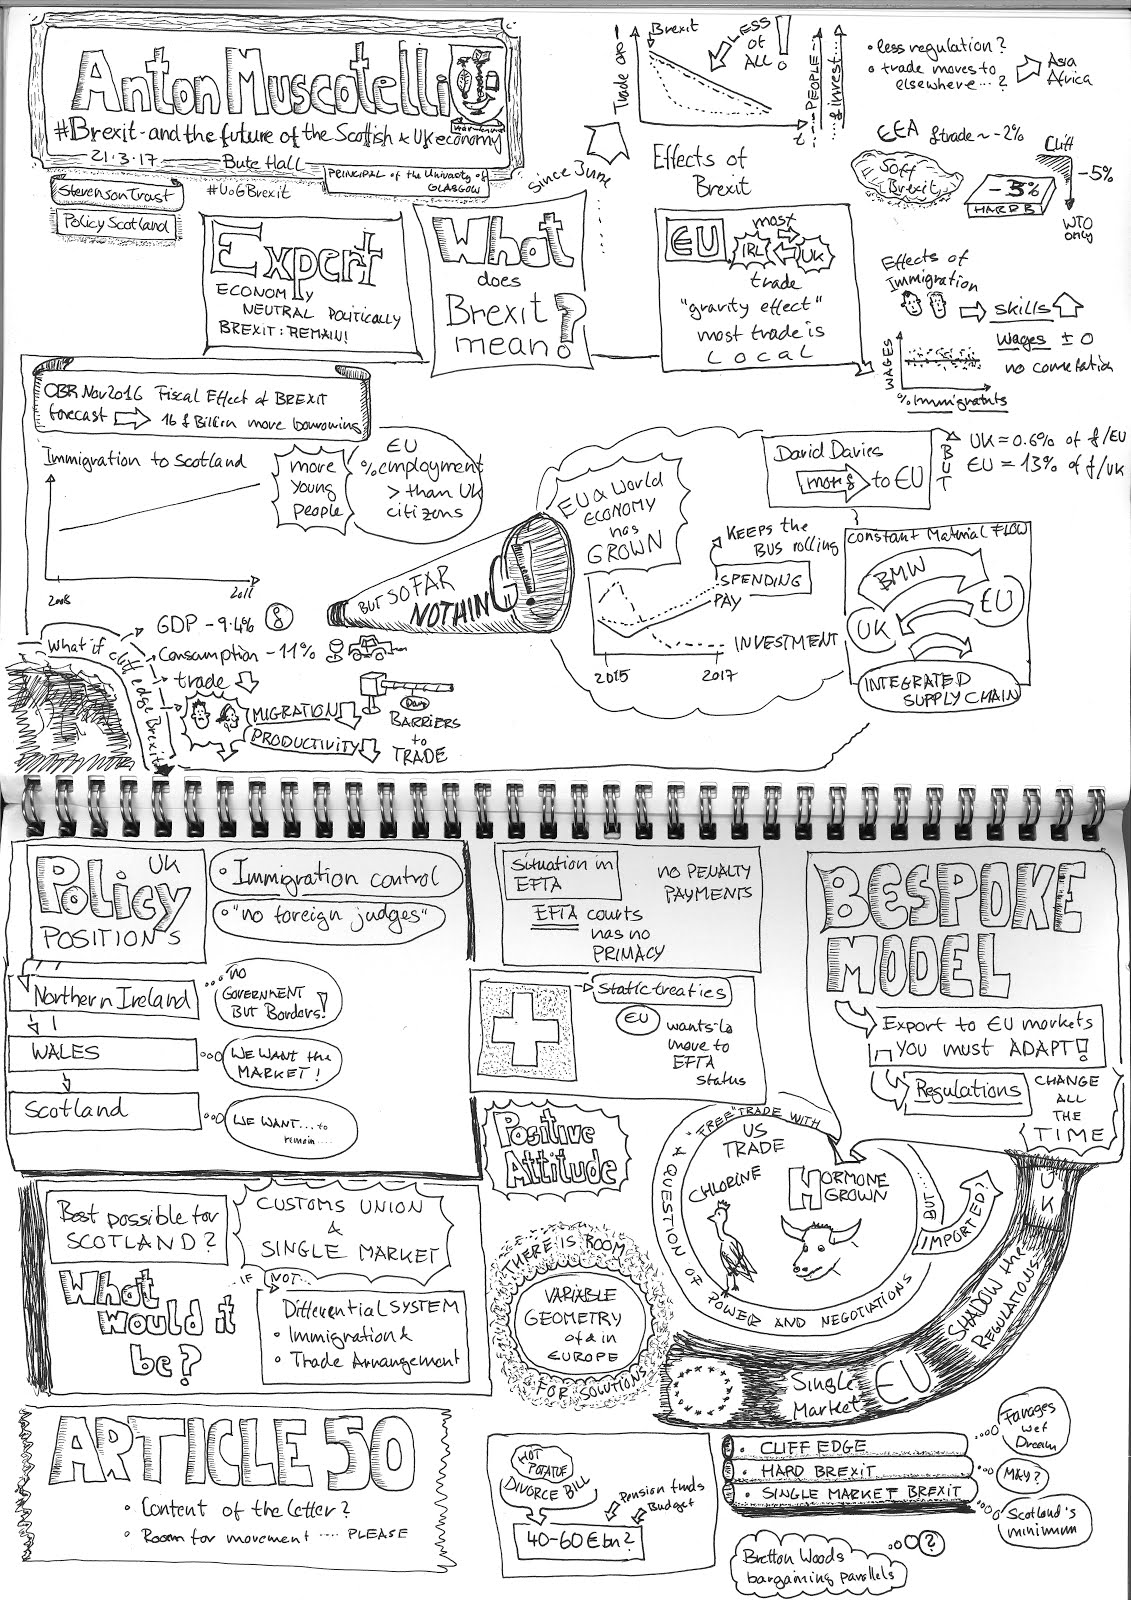 Anton Muscatelli
#Brexit - and the future of the Scottish & UK economy
21.3.17
Bute Hall
PRINCIPAL of the University of
GLASGOW
Stevenson Trust
#UoGBrexit
Policy Scotland
Expert
ECONOMY
NEUTRAL POLITICALLY
BREXIT: REMAIN!
What
does
Brexit?
mean
since June
Trade
Brexit
LESS
of
ALL!
t
PEOPLE
£ invest
Effects of
Brexit
• less regulation?
• trade moves to
elsewhere...?
Asia
Africa
EEA £trade ~ -2%
Soft
Brexit
-3%
HARD B
Cliff
-5%
WTO
only
EU
IRL
most
UK
trade
"gravity effect"
most trade is
LOCAL
Effects of
Immigration
skills
Wages ± 0
no correlation
WAGES
% Immigrants
OBR Nov 2016 Fiscal Effect of BREXIT
forecast 16 £ Billion more borrowing
Immigration to Scotland
more
young
people
EU
% employment
> than UK
citizens
BUT SO FAR
NOTHING!
EU & World
ECONOMY
has
GROWN
KEEPS the
BUS rolling
SPENDING
PAY
INVESTMENT
2015
2017
David Davies
more £ to EU
BUT
UK = 0.6% of £/EU
EU = 13% of £/UK
Constant Material FLOW
BMW
EU
UK
INTEGRATED
SUPPLY CHAIN
What if cliff edge Brexit
GDP -9.4%
Consumption -11%
trade
MIGRATION
PRODUCTIVITY
BARRIERS
to
TRADE
UK
Policy
POSITIONS
• Immigration control
• "no foreign judges"
Northern Ireland
no
GOVERNMENT
BUT Borders!
WALES
WE WANT the
MARKET!
Scotland
WE WANT... to
remain....
Situation in
EFTA
NO PENALTY
PAYMENTS
EFTA courts
has no
PRIMACY
Static treaties
EU wants to
move to
EFTA
status
BESPOKE
MODEL
Export to EU markets
YOU must ADAPT!
Regulations
CHANGE
ALL
THE
TIME
Positive
Attitude
"FREE" TRADE WITH
US
TRADE
CHLORINE
HORMONE
GROWN
A QUESTION OF POWER AND NEGOTIATIONS
BUT....
IMPORTED?
UK
SHADOW the
REGULATIONS
EU
Single
Market
Best possible for
SCOTLAND?
CUSTOMS UNION
&
SINGLE MARKET
What
would it
be?
IF NOT...
Differential SYSTEM
• Immigration &
• Trade Arrangement
THERE IS ROOM
VARIABLE
GEOMETRY
of & in
EUROPE
FOR SOLUTIONS
ARTICLE 50
• Content of the letter?
• Room for movement .... PLEASE
HOT
POTATOE
DIVORCE BILL
Pension funds
Budget
40-60 € bn?
• CLIFF EDGE
• HARD BREXIT
• SINGLE MARKET BREXIT
Farages
wet
Dream
May?
Scotland's
minimum
Bretton Woods
bargaining parallels
?